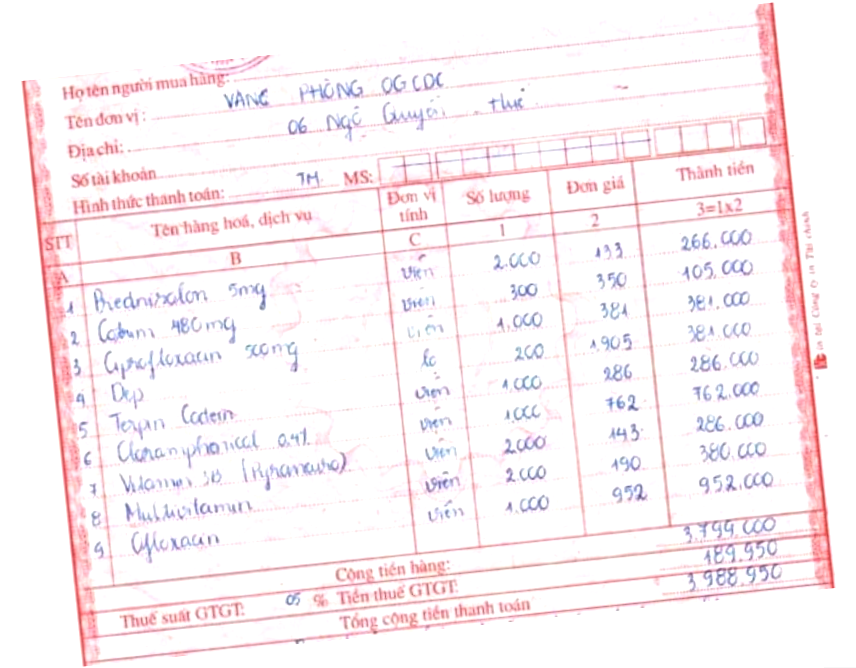 Họ tên người mua hàng:
Tên đơn vị: VĂNG PHÒNG OGCDC
Địa chỉ: 06 Ngô Quyền - Huế
Số tài khoản
Hình thức thanh toán: TM MS:
STT Tên hàng hoá, dịch vụ Đơn vị tính Số lượng Đơn giá Thành tiền
A B C 1 2 3=1x2
1 Prednisalon 5mg viên 2.000 133 266.000
2 Cotrim 480mg viên 300 350 105.000
3 Ciprofloxacin 500mg viên 1.000 381 381.000
4 Dep lọ 200 1.905 381.000
5 Terpin Codein viên 1.000 286 286.000
6 Cloramphonical 0.4% viên 1.000 762 762.000
7 Vitamin 3B viên 2.000 143 286.000
8 Multivitamin viên 2.000 190 380.000
9 Ofloxacin viên 1.000 952 952.000
Cộng tiền hàng: 3.799.000
Thuế suất GTGT: 05 % Tiền thuế GTGT: 189.950
Tổng cộng tiền thanh toán 3.988.950